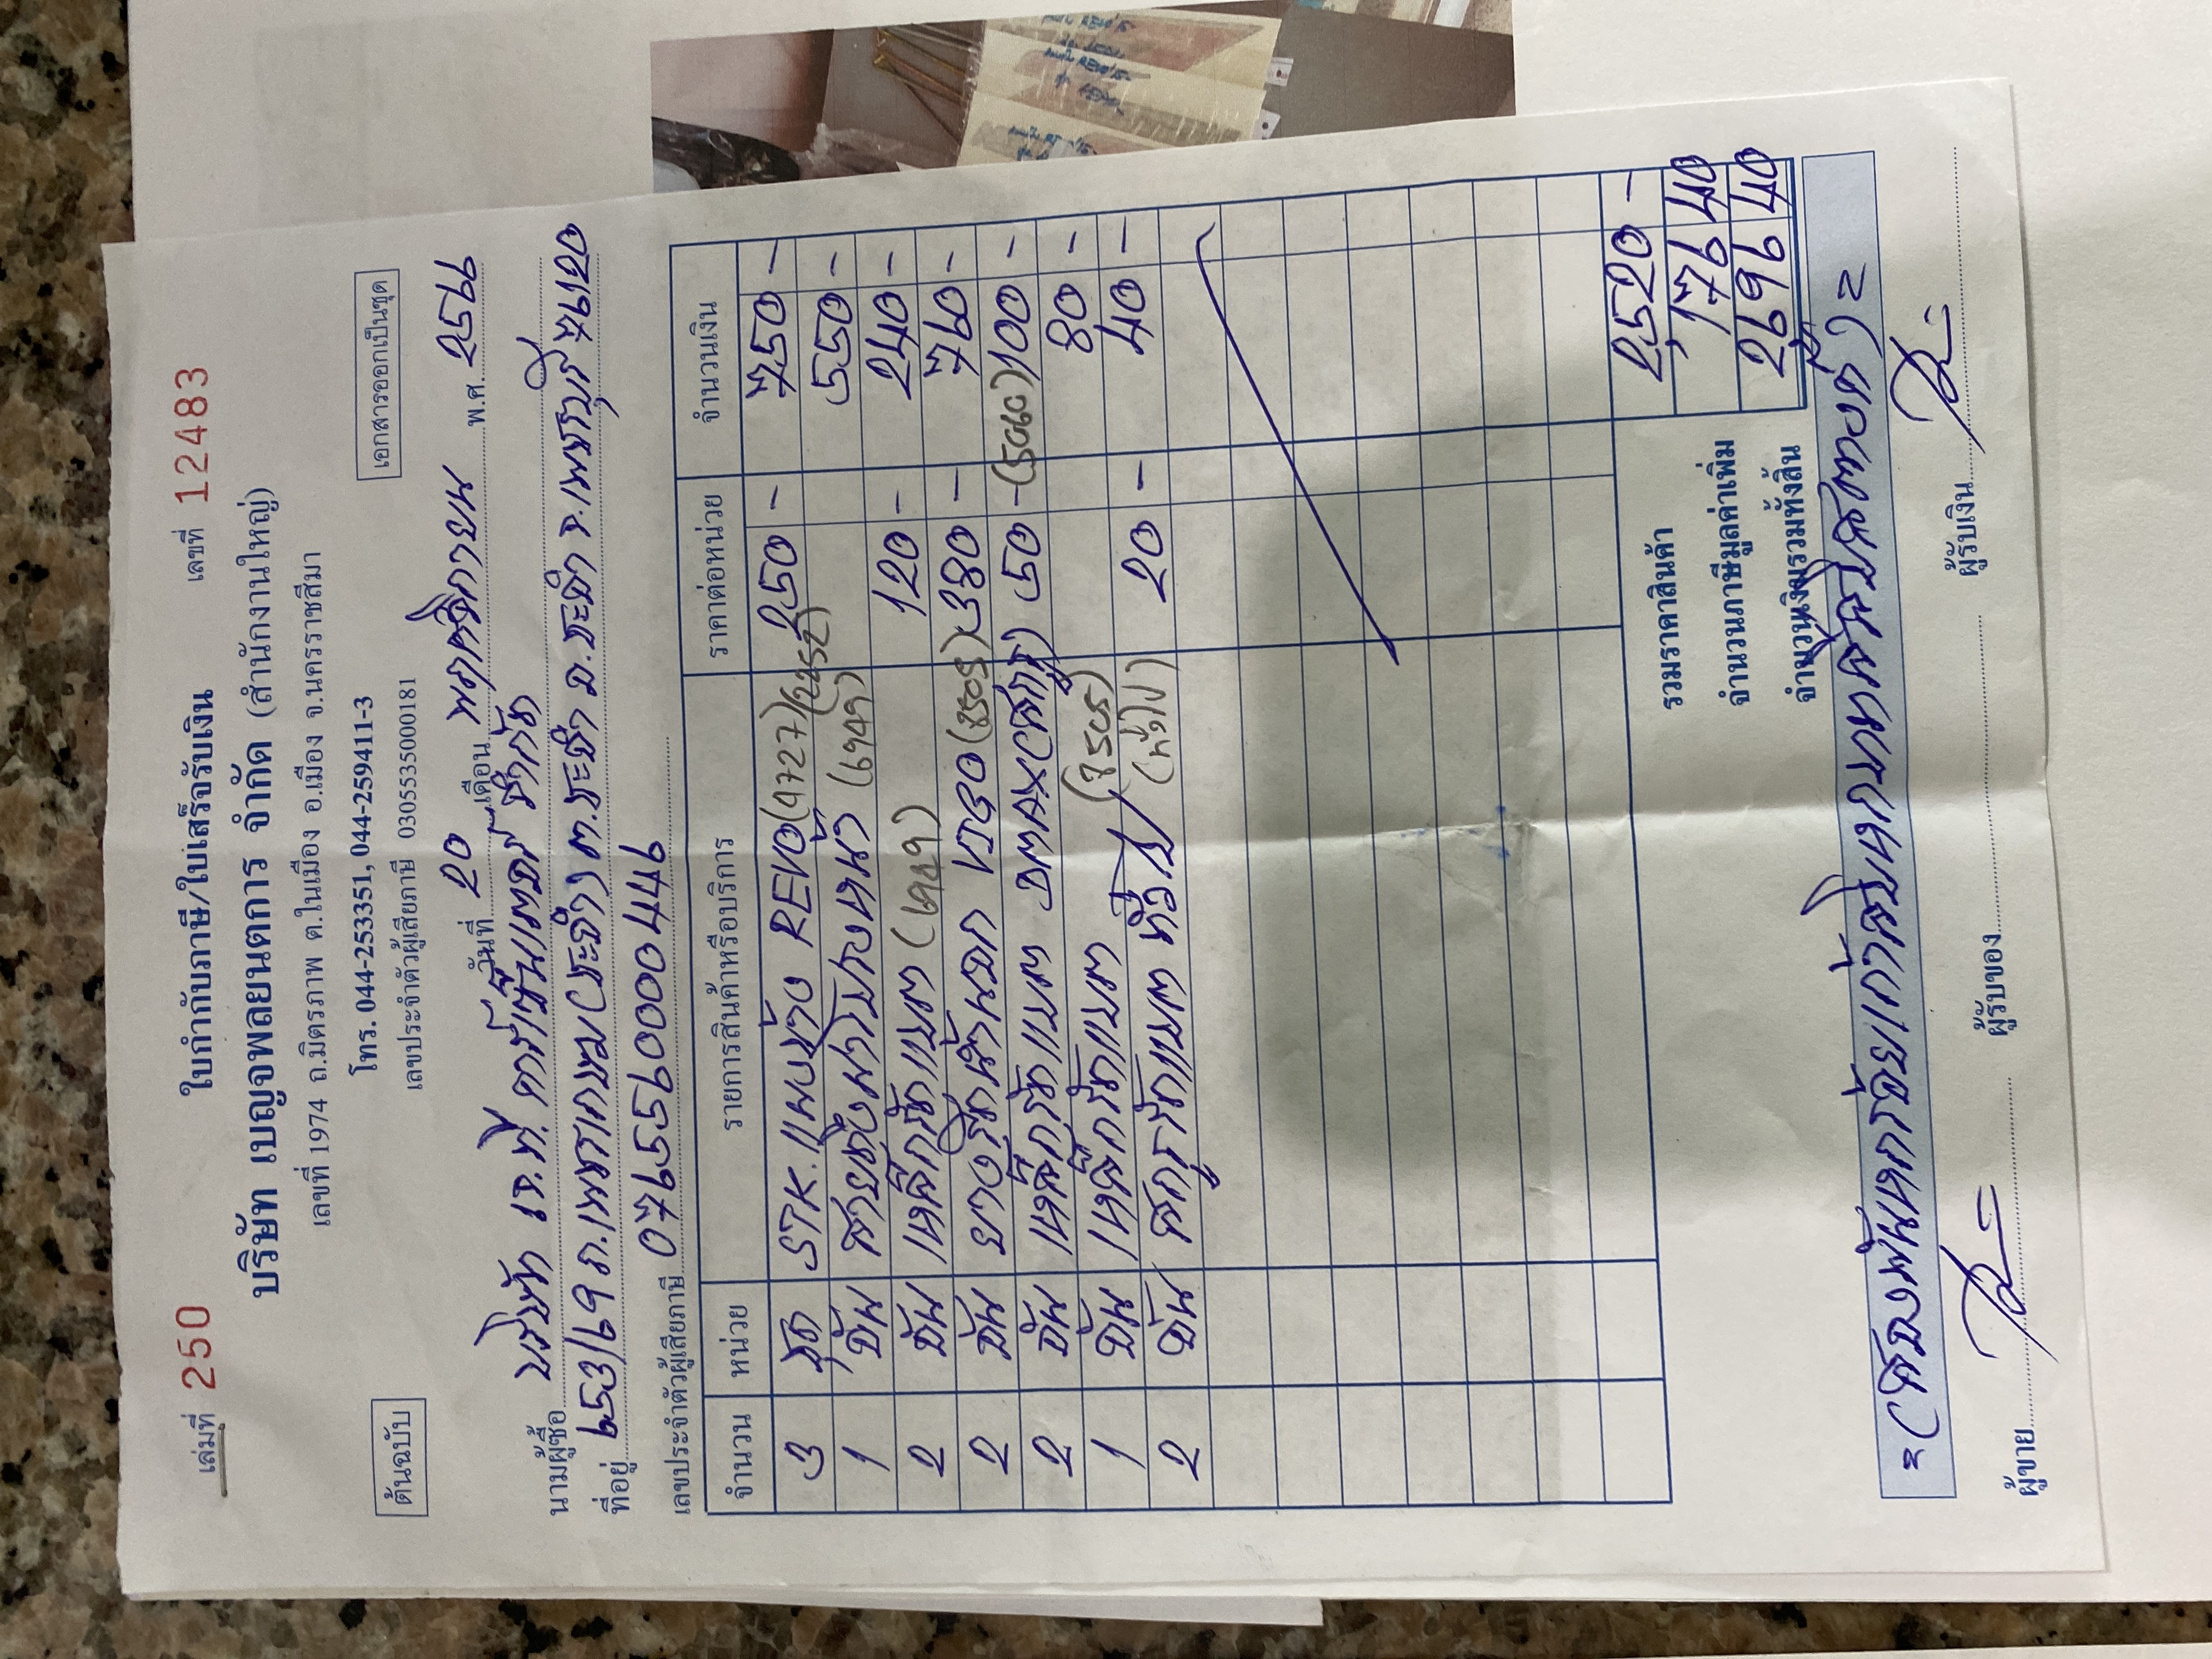 เล่มที่ 250 ใบกำกับภาษี/ใบเสร็จรับเงิน เลขที่ 12483
บริษัท เบญจพลยนตการ จำกัด (สำนักงานใหญ่)
เลขที่ 1974 ถ.มิตรภาพ ต.ในเมือง อ.เมือง จ.นครราชสีมา
ต้นฉบับ โทร. 044-253351, 044-259411-3 เอกสารออกเป็นชุด
เลขประจำตัวผู้เสียภาษี 0305535000181
วันที่ 20 เดือน พฤศจิกายน พ.ศ. 2516
นามผู้ซื้อ บริษัท เจ.ที. คาร์เซ็นเตอร์ จำกัด
ที่อยู่ 653/69 ถ.เพชรเกษม (ชะอำ) ต.ชะอำ อ.ชะอำ จ.เพชรบุรี 76120
เลขประจำตัวผู้เสียภาษี 0765560000446
จำนวน หน่วย รายการสินค้าหรือบริการ ราคาต่อหน่วย จำนวนเงิน
3 ชุด STK. แผงข้าง REVO (4727) (2252) 250 - 750 -
1 อัน (6949) 550 -
2 อัน เหล็กรัดแบต (6949) 120 - 240 -
2 อัน ยางรีดน้ำนอก (8505) 380 - 760 -
2 อัน เหล็กรัดแบต DMAX (5060) 50 - 100 -
1 อัน เหล็กรัดแบต (8505) 80 -
2 อัน 20 - 40 -
รวมราคาสินค้า 2,520 -
จำนวนภาษีมูลค่าเพิ่ม 176 40
จำนวนเงินรวมทั้งสิ้น 2696 40
= (สองพันหกร้อยเก้าสิบหกบาทสี่สิบสตางค์) =
ผู้ขาย ผู้รับของ ผู้รับเงิน